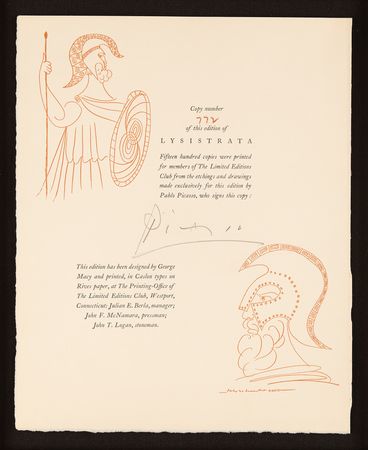 Copy number
772
of this edition of
LYSISTRATA
Fifteen hundred copies were printed
for members of The Limited Editions
Club from the etchings and drawings
made exclusively for this edition by
Pablo Picasso, who signs this copy:
Picasso
This edition has been designed by George
Macy and printed, in Caslon types on
Rives paper, at The Printing-Office of
The Limited Editions Club, Westport,
Connecticut: Julian E. Berla, manager;
John V. McNamara, pressman;
John T. Logan, stoneman.